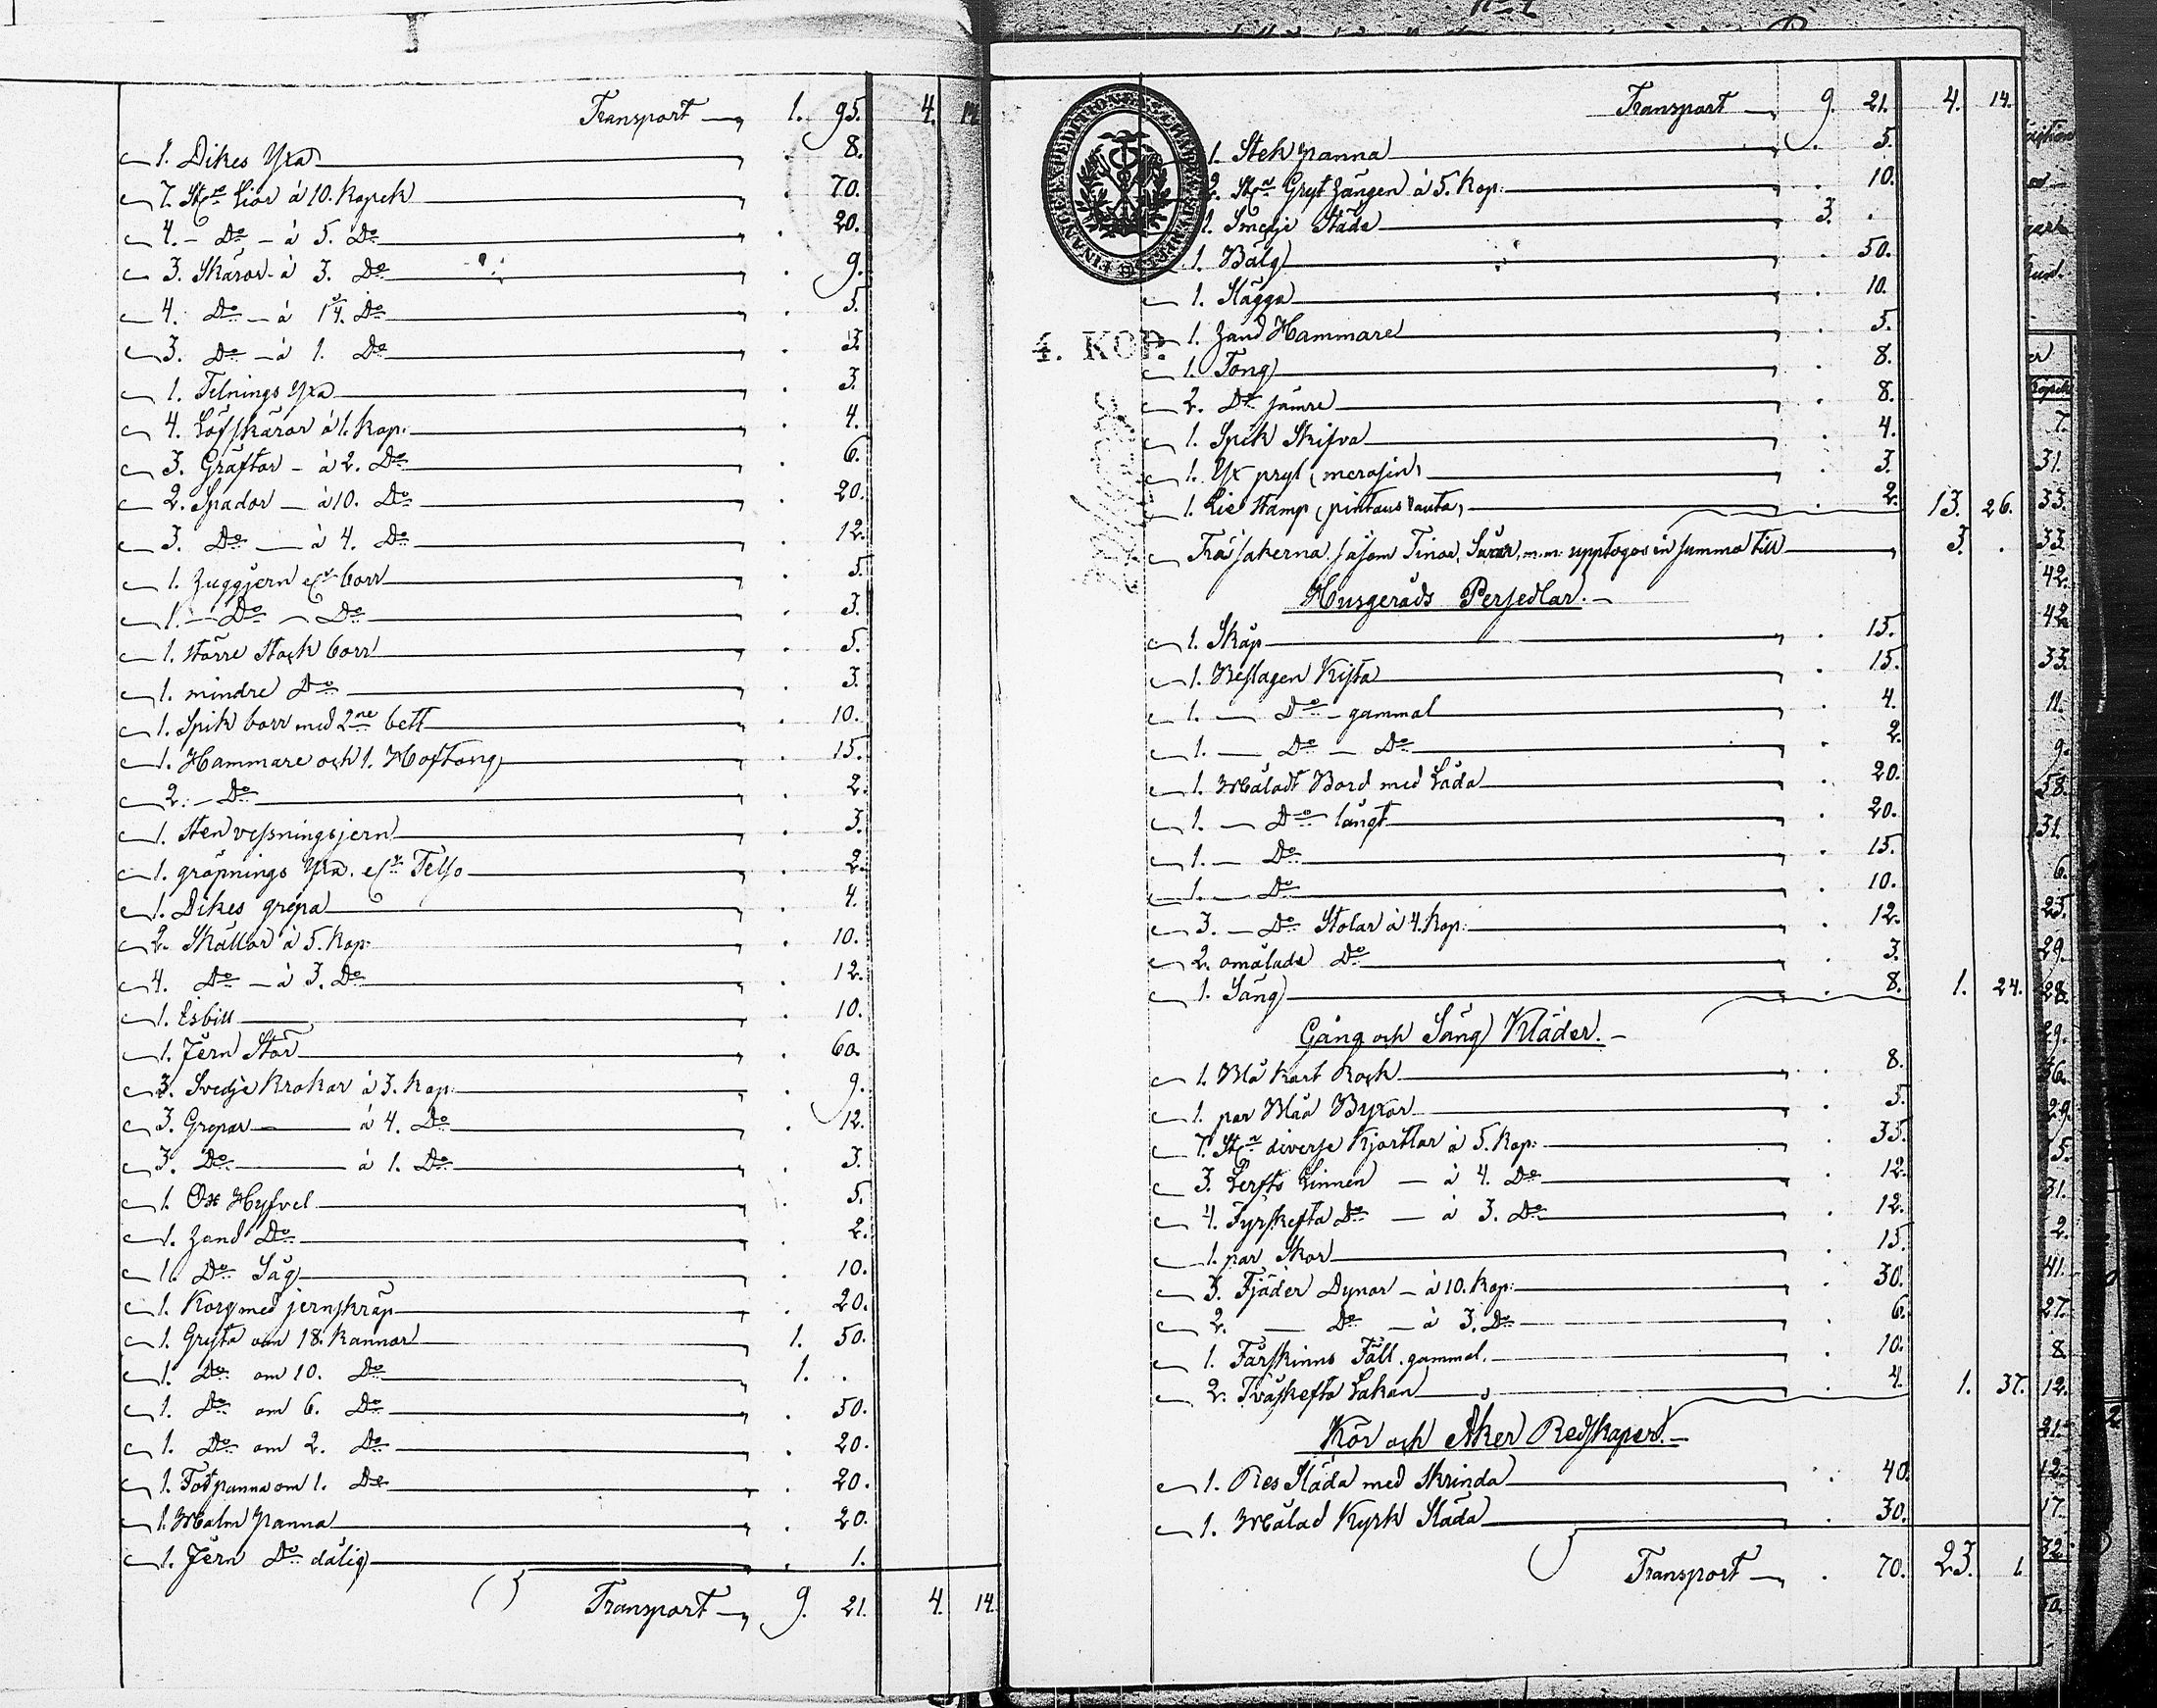 Transport 1. 95. 4. 14.
1. Dikes Yxa 8.
7. St:n Liar á 10. Kopek 70.
4. - Do - á 5. Do 20.
3. Skäror á 3. Do 9.
4. Do - á 1¼. Do 5.
3. Do - á 1. Do 3.
1. Telnings Yxa 3.
4. Löfskäror á 1. Kop: 4.
3. Gräftor - á 2. Do 6.
2. Spador - á 10. Do 20.
3. Do - á 4. Do 12.
1. borr 5.
1. - Do - Do 3.
1. större Stock borr 5.
1. mindre Do 3.
1. Spik borr med 2ne bett 10.
1. Hammare och 1. Hoftong 15.
2. - Do 2.
1. Sten 3.
1. gröpnings Yxa. Telso 2.
1. Dikes grepa 4.
2. Skällor á 5. Kop: 10.
4. Do - á 3. Do 12.
1. Esbill 10.
1. Jern Stör 60.
3. Svedje Krokar á 3. Kop: 9.
3. Grepar á 4. Do 12.
3. Do á 1. Do 3.
1. Ox Hyfvel 5.
1. Hand Do 2.
1. Do Såg 10.
1. Korg med jernskräp 20.
1. Gryta om 18. Kannor 1. 50.
1. Do om 10. Do 1. .
1. Do om 6. Do 50.
1. Do om 2. Do 20.
1. Fotpanna om 1. Do 20.
1. Malm panna 20.
1. Jern Do dålig 1.
Transport 9. 21. 4. 14.
Transport 9. 21. 4. 14.
1. Stek panna 5.
2. St:n Gryt Hängen á 5. Kop: 10.
1. Smedje Städe 3. .
1. Bälg 50.
1. Slägga 10.
4. KOP.
1. Hand Hammare 5.
1. Tong 8.
2. Do sämre 8.
1. Spik Skifva 4.
1. Yx pryl (merasin) 3.
1. Lie Stamp (pintaus rauta) 2. 13. 26.
Träsakerna, såsom Tinor, Såar, m.m. upptogos in summa till 3. .
Husgeråds Persedlar.-
1. Skåp 15.
1. Beslagen Kista 15.
1. - Do - gammal 4.
1. - Do - Do 2.
1. Måladt Bord med Låda 20.
1. - Do långt 20.
1. - Do 15.
1. - Do 10.
3. - Do Stolar á 4. Kop: 12.
2. omålade Do 3.
1. Säng 8. 1. 24.
Gång och Säng Kläder.-
1. Blå kort Rock 8.
1. par Blåa Byxor 5.
7. St:n diverse Kjortlar á 5. Kop: 35.
3. Lerfts Linnen - á 4. Do 12.
4. Fyrskefta Do - á 3. Do 12.
1. par Skor 15.
3. Fjäder Dynor - á 10. Kop: 30.
2. - Do - á 3. Do 6.
1. Fårskinns Fäll. gammal. 10.
2. Tvåskefta Lakan 4. 1. 37.
Kör och Åker Redskaper.-
1. Res Släda med Skrinda 40.
1. Målad Kyrk Släda 30.
Transport 70. 23. 1.